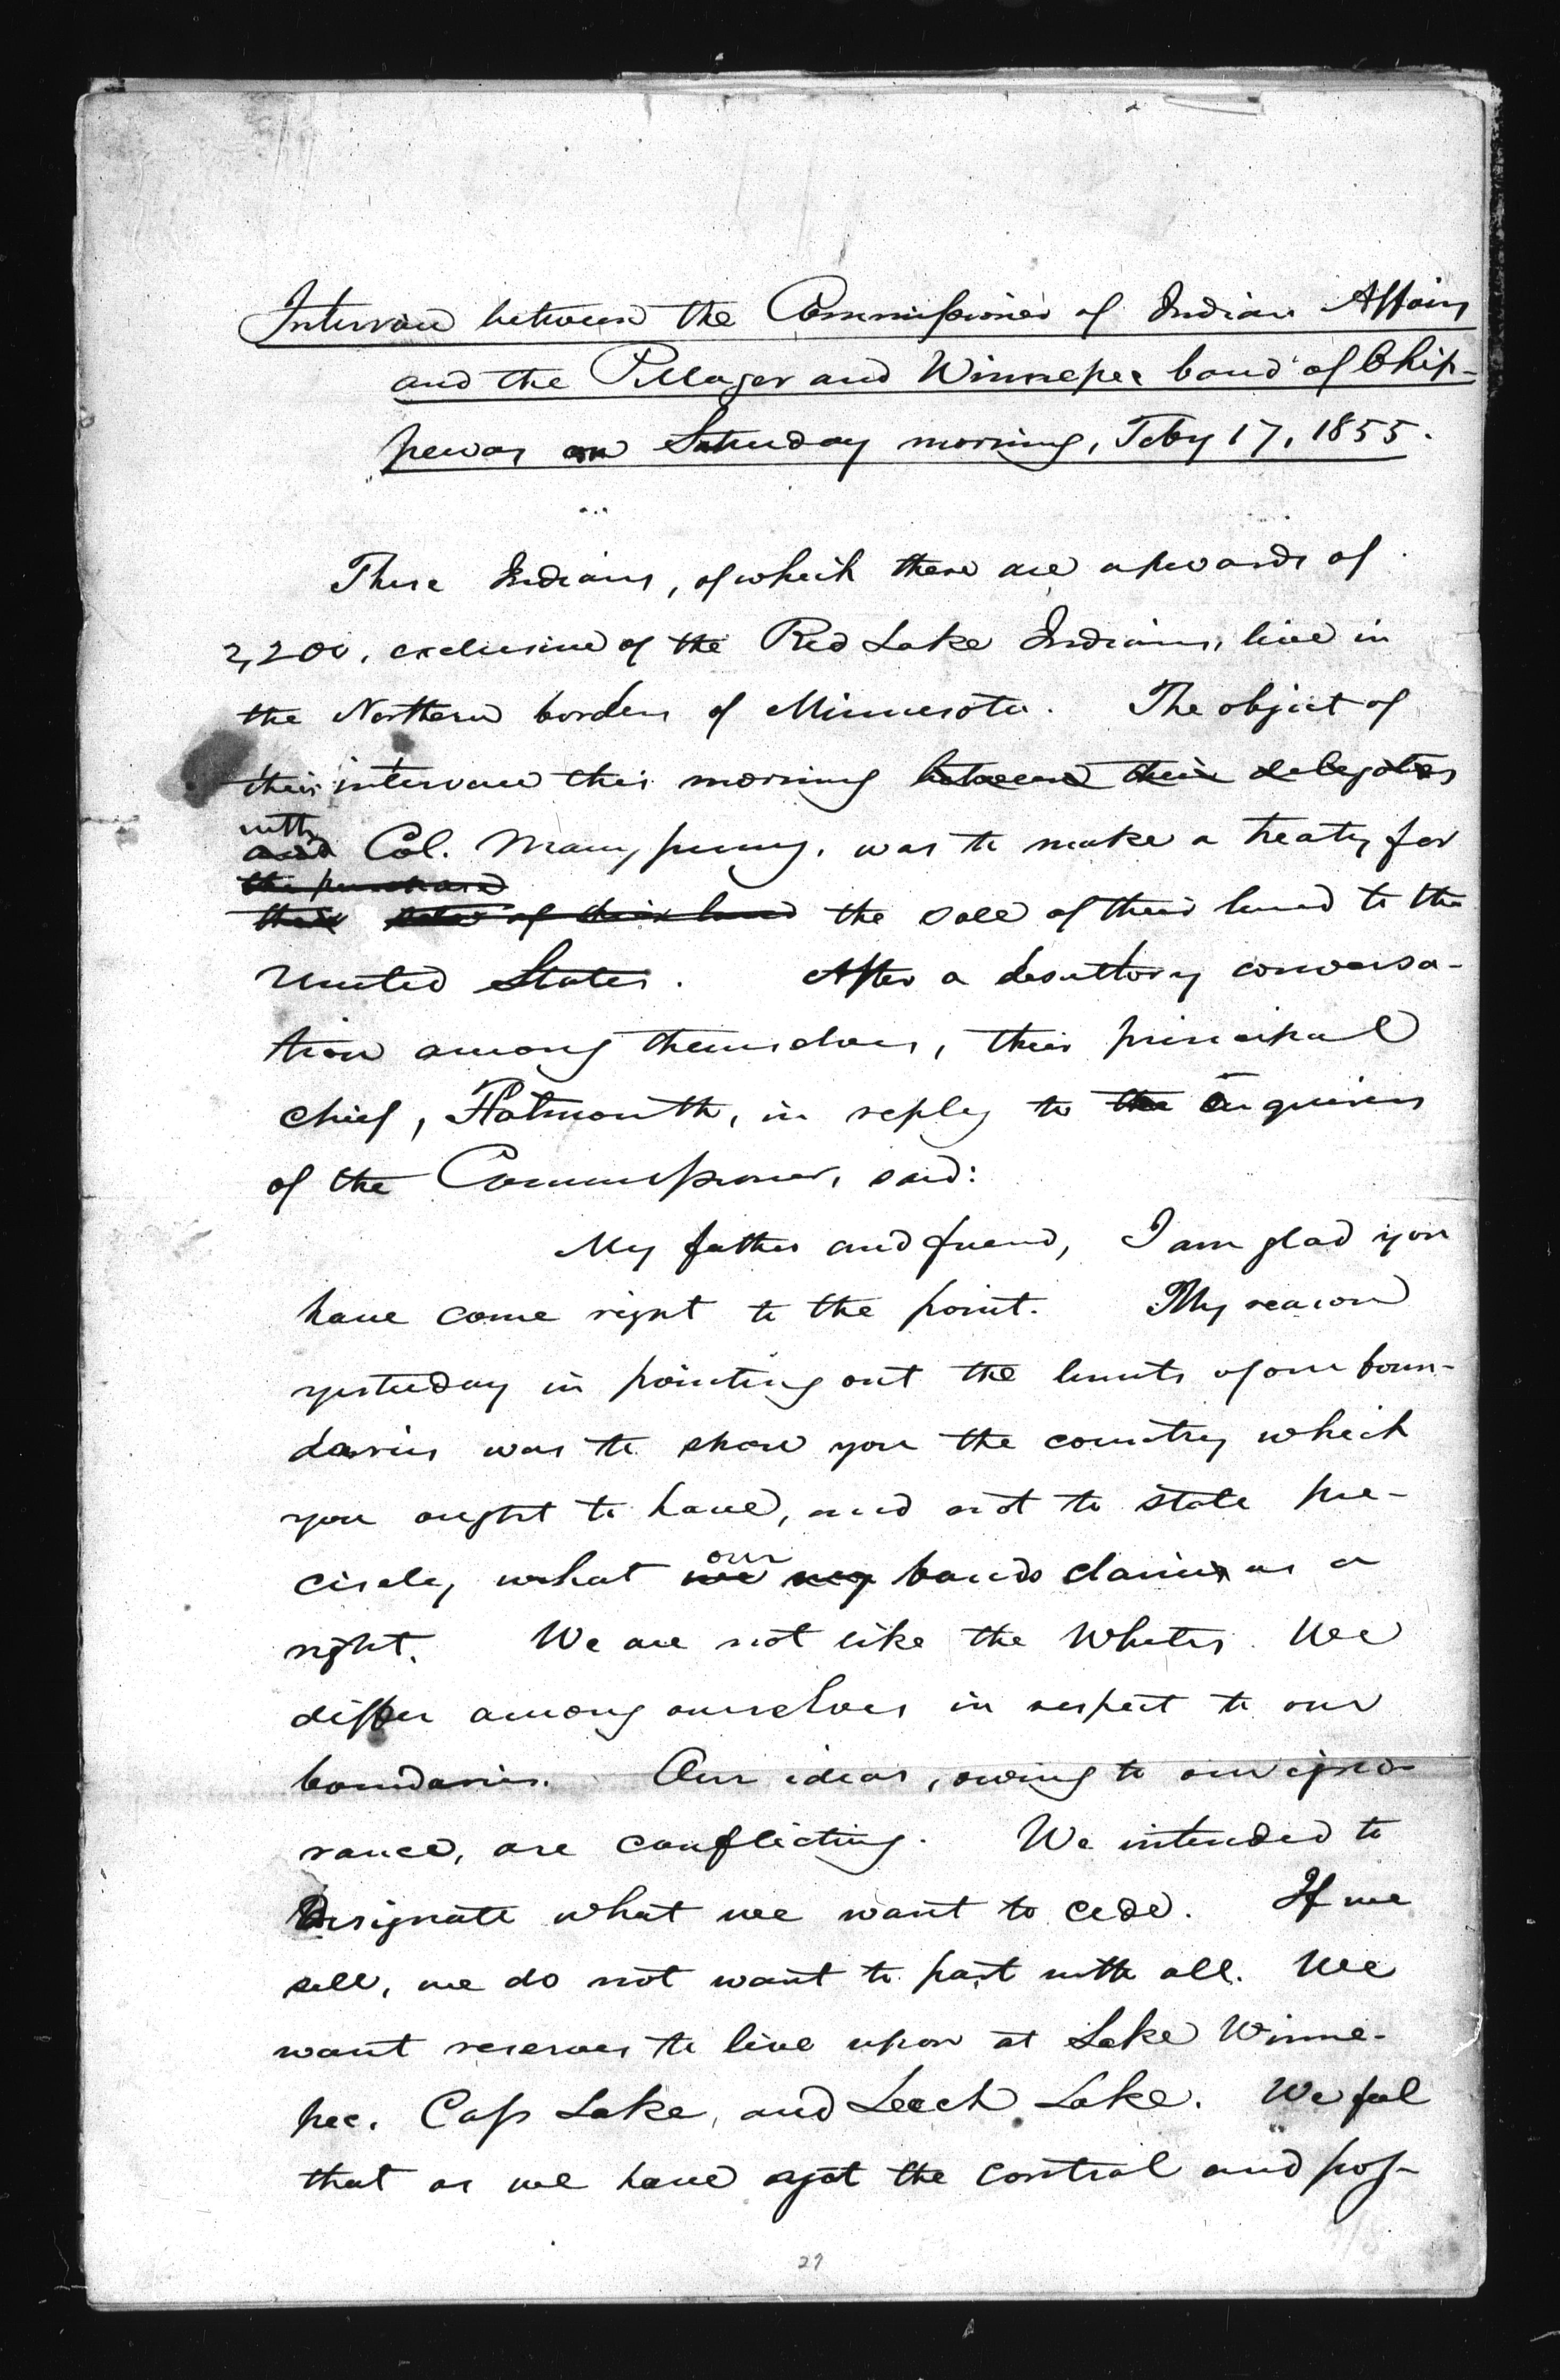 Interview between the Commissioner of Indian Affairs
and the Pillager and Winnepec band of Chip-
pewas on Saturday morning, Feby 17, 1855.
These Indians, of which there are upwards of
2,200, exclusive of the Red Lake Indians, live in
the Northern borders of Minnesota. The object of
their interview this morning between their delegates
with
and Col. Manypenny, was to make a treaty for
the purchase
their sale of their land the sale of their land to the
United States. After a desultory conversa-
tion among themselves, their principal
chief, Flatmouth, in reply to the enquiries
of the Commissioner, said:
My father and friend, I am glad you
have come right to the point. My reason
yesterday in pointing out the limits of our boun-
daries was to show you the country which
you ought to have, and not to state pre-
our
cisely what we my bands claim as a
right. We are not like the Whites. We
differ among ourselves in respect to our
boundaries. Our ideas, owing to our igno-
rance, are conflicting. We intended to
designate what we want to cede. If we
sell, we do not want to part with all. We
want reserves to live upon at Lake Winne-
pec, Cass Lake, and Leech Lake. We feel
that as we have got the control and pos-
27